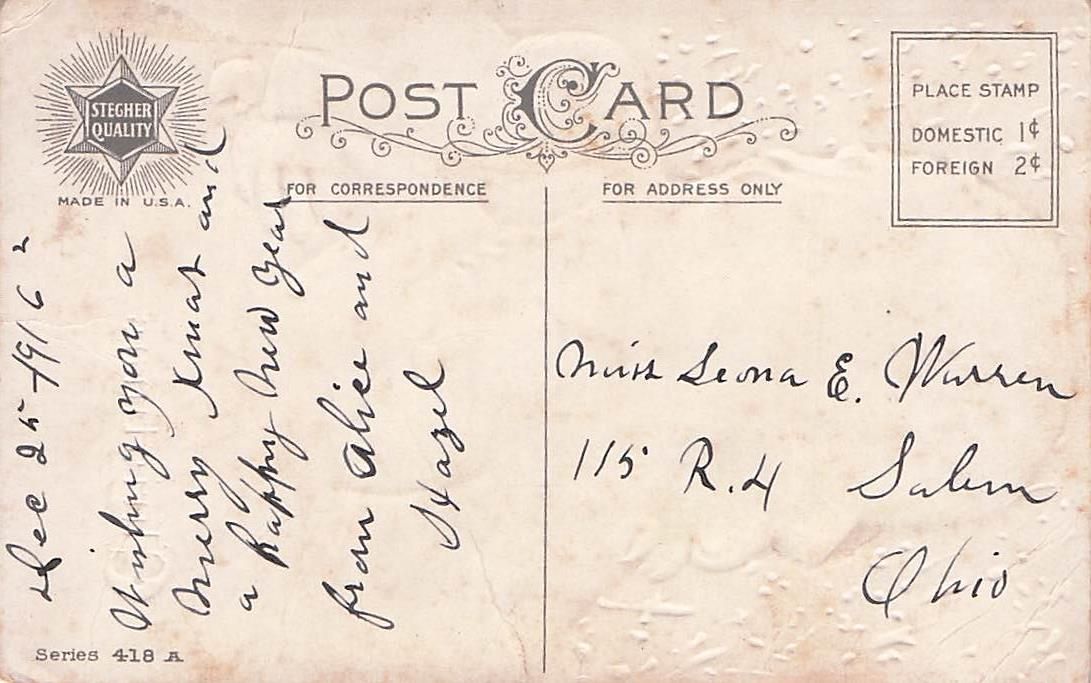 STEGHER
QUALITY
MADE IN U.S.A.
POST CARD
PLACE STAMP
DOMESTIC 1¢
FOREIGN 2¢
FOR CORRESPONDENCE
FOR ADDRESS ONLY
Dec 25-1916
Wishing you a
Merry Xmas and
a Happy New Year
from Alice and
Hazel
Miss Leona E. Warren
115 R.4 Salem
Ohio
Series 418 A